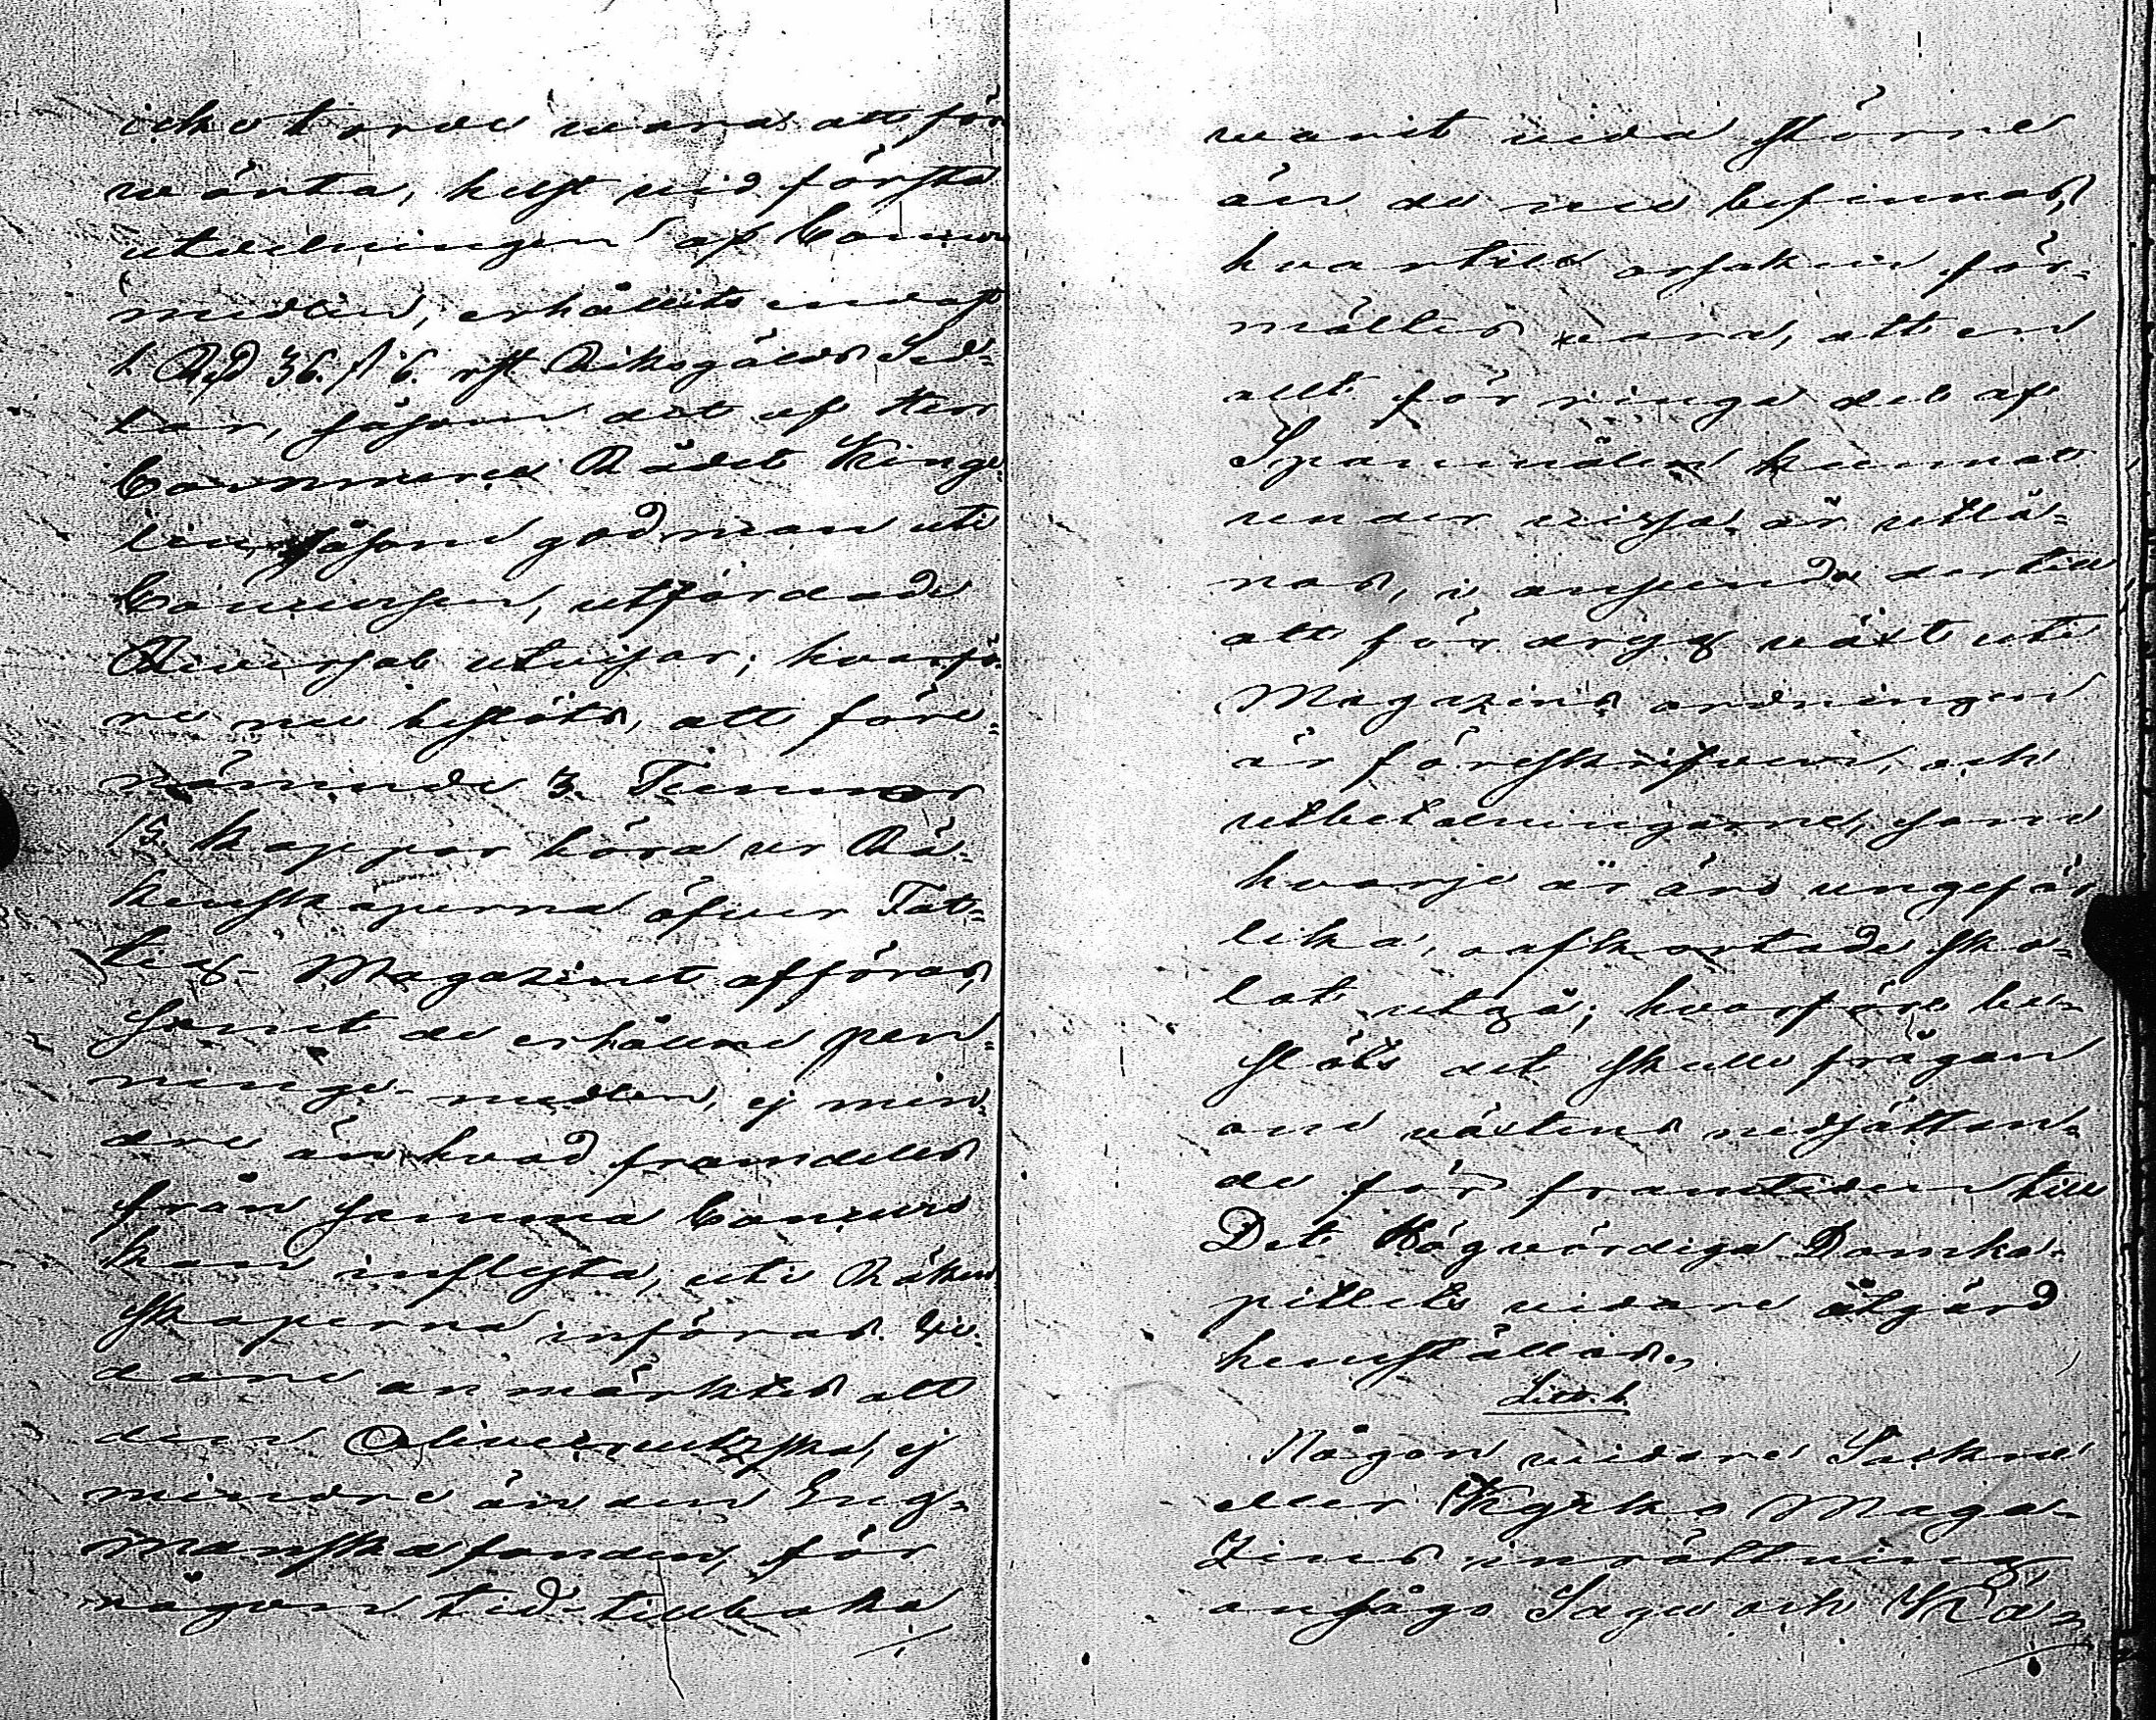 icke torde wara att för
wänta, helst vid första
utdelningen af Concurs
medlen, erhållits endast
1 Rd 36. s 6. rst Riksgälds Sed-
lar, såsom det af Herr
Commerce Rådet Kinge
lin såsom godman uti
Concursen, utfärdade
Reversal utvisar; hvarfö-
re nu beslöts, att före-
nämnde 3. Tunnor
15 Kappar böra ur Rä-
kenskaperna öfver Fat-
tig- Magazinet afföras,
samt de erhållne pen-
ninge- medlen, ej min-
dre än hvad framdeles
från samma Concurs
kan inflyta, uti Räken
skaperna införas. Se-
dan anmärktes att
den Oliveicreutzska, ej
mindre än den Eng-
manska fonden, för
någon tid tillbaka
varit vida större
än de nu befinnas,
hvartill orsaken för-
mältes vara, att en
allt för ringa del af
Spannmålen kunnat
under vissa år utlå-
nas, i anseende dertill
att för dryg växt uti
Magazins ordningen
är föreskrifven, och
utbetalningarne, som
hvarje år äro ungefär
lika, oafkortade sko-
lat utgå; hvarföre be-
slöts det skulle frågan
om växtens nedsättan-
de för framtiden till
Det Högvördiga Domka-
pitlets vidare åtgärd
hemställas.
Litt. L.
Någon vidare Sockne
eller Kyrko Maga-
Zins inrättning
ansågo Sagu och Kä-